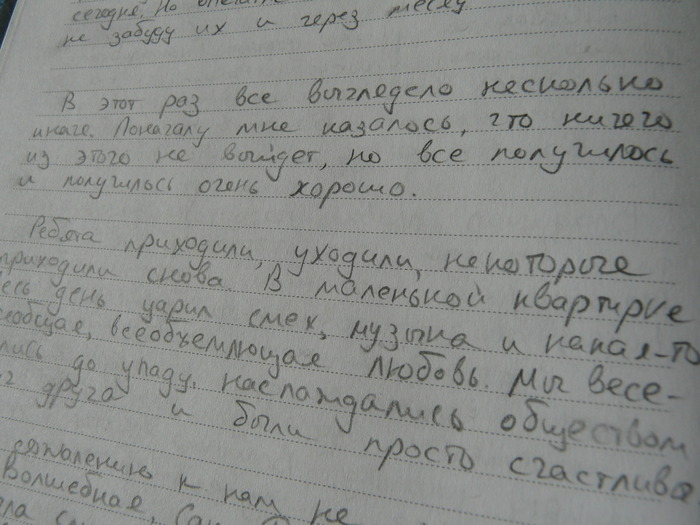 сегодня. Но
не забуду их и через месяц
В этот раз все выглядело несколько
иначе. Поначалу мне казалось, что ничего
из этого не выйдет, но все получилось
и получилось очень хорошо.
Ребята приходили, уходили, некоторые
приходили снова. В маленькой квартирке
день царил смех, музыка и какая-то
всеобъемлющая любовь. Мы весе-
лись до упаду, наслаждались обществом
друга и были просто счастливы
сожалению к нам не
Волшебная,